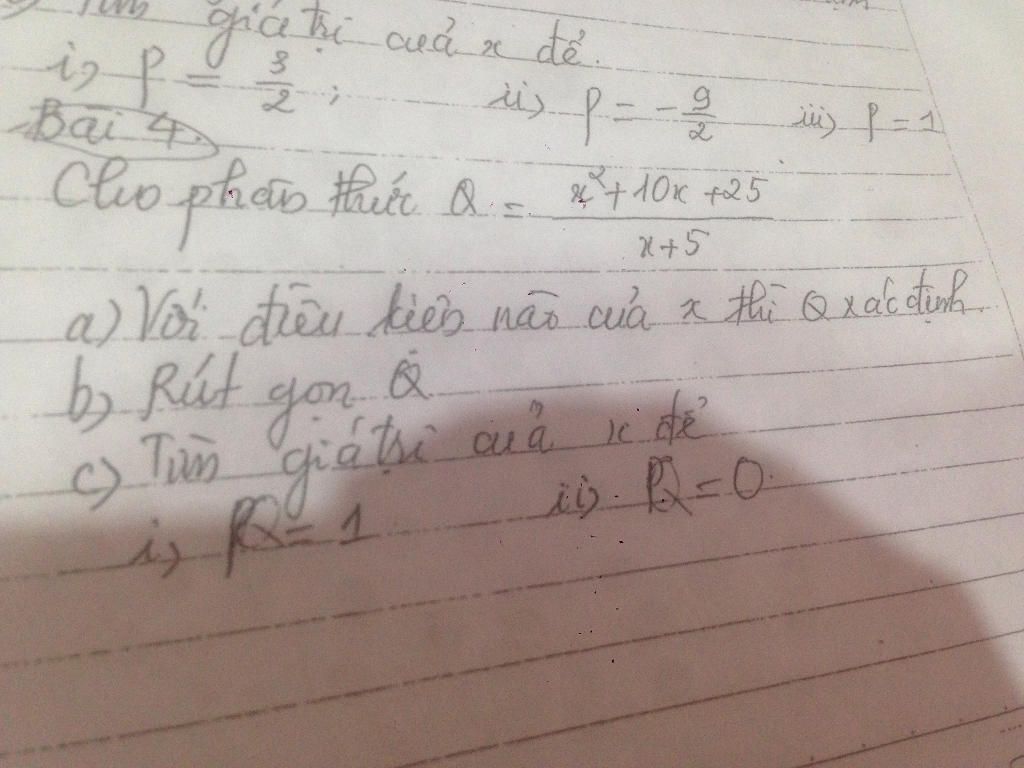 Tìm giá trị của x để.
i, P = 3/2 ; ii, P = - 9/2 iii, P = 1
Bài 4.
Cho phân thức Q = (x² + 10x + 25)/(x + 5)
a) Với điều kiện nào của x thì Q xác định.
b) Rút gọn Q
c) Tìm giá trị của x để
i, Q = 1 ii, Q = 0.